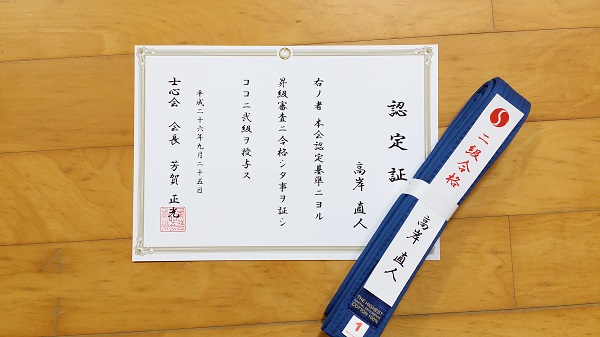 認定証
高岸 直人
右ノ者 本会認定基準ニヨル
昇級審査ニ合格シタ事ヲ証シ
ココニ弐級ヲ授与ス
平成二十六年九月二十五日
士心会 会長 芳賀 正光
二級合格
高岸 直人
THE HIGHEST
COTTON 100%
1